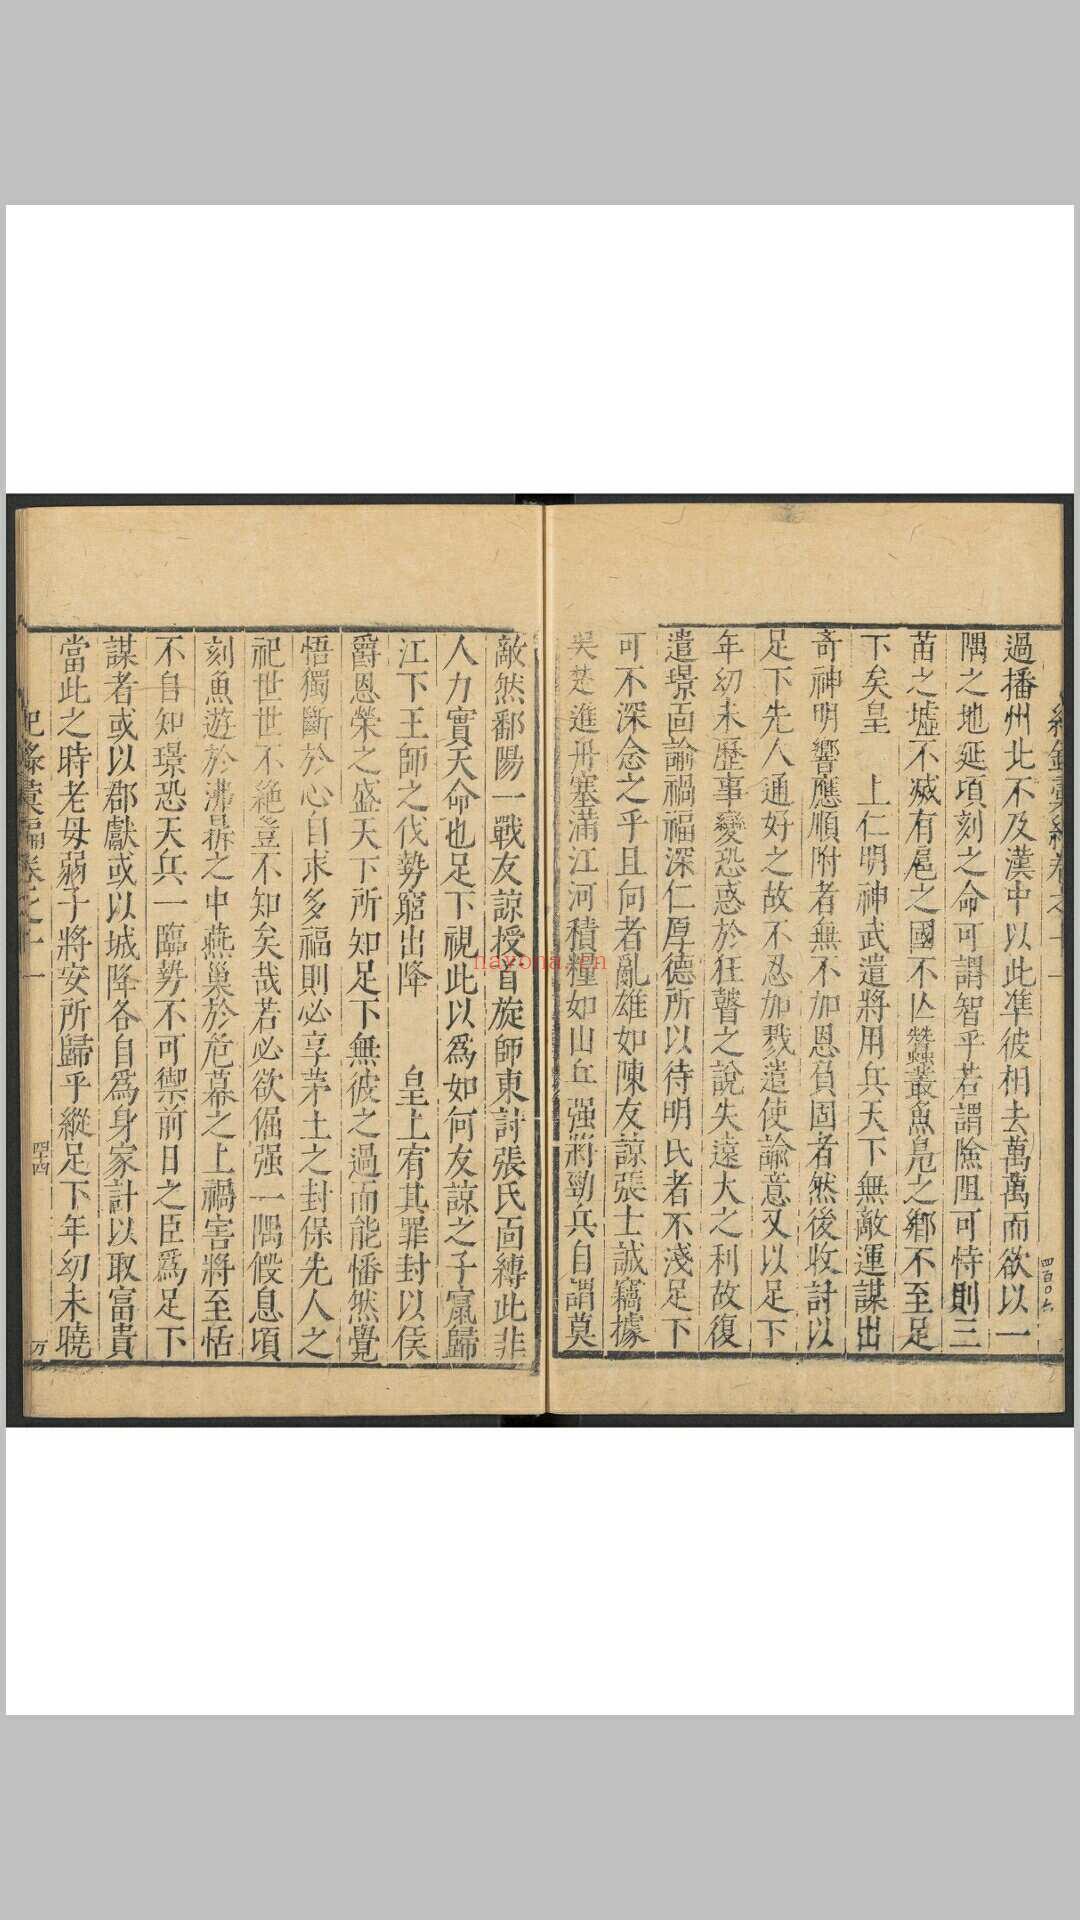 紀錄彙編卷之十一
四百〇六
過播州北不及漢中以此準彼相去萬萬而欲以一
隅之地延頃刻之命可謂智乎若謂險阻可恃則三
苗之墟不滅有扈之國不亾蠶叢魚鳧之鄉不至足
下矣皇 上仁明神武遣將用兵天下無敵運謀出
奇神明響應順附者無不加恩負固者然後收討以
足下先人通好之故不忍加戮遣使諭意又以足下
年幼未歷事變恐惑於狂瞽之說失遠大之利故復
遣璟面諭禍福深仁厚德所以待明氏者不淺足下
可不深念之乎且向者亂雄如陳友諒張士誠竊據
吳楚進舟塞滿江河積糧如山丘强將勁兵自謂莫
敵然鄱陽一戰友諒授首旋師東討張氏面縛此非
人力實天命也足下視此以爲如何友諒之子竄歸
江下王師之伐勢窮出降 皇上宥其罪封以侯
爵恩榮之盛天下所知足下無彼之過而能幡然覺
悟獨斷於心自求多福則必享茅土之封保先人之
祀世世不絶豈不知矣哉若必欲倔强一隅假息頃
刻魚遊於沸鼎之中燕巢於危幕之上禍害將至恬
不自知璟恐天兵一臨勢不可禦前日之臣爲足下
謀者或以郡獻或以城降各自爲身家計以取富貴
當此之時老母弱子將安所歸乎縱足下年幼未曉
紀錄彙編卷之十一
四十四
万
nayona.cn